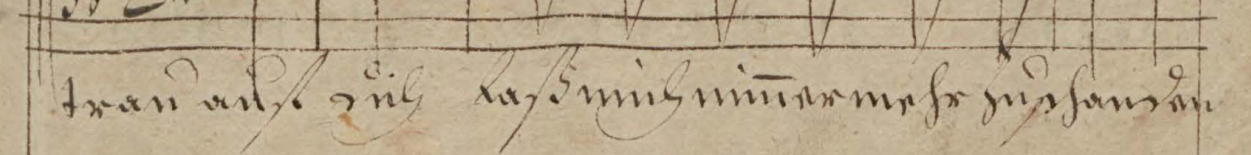 traŭ aŭf dich laß mich nim̄ermehr zŭ schanden